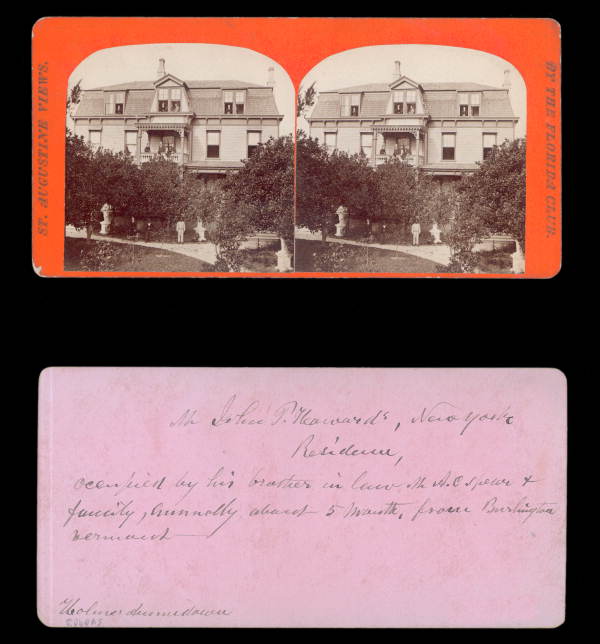 ST. AUGUSTINE VIEWS.
BY THE FLORIDA CLUB.
Mr John P. Howards, New York
Residence,
occupied by his brother in law, Mr A. C Spear &
family, annually about 5 Months, from Burlington
Vermont
Holmes